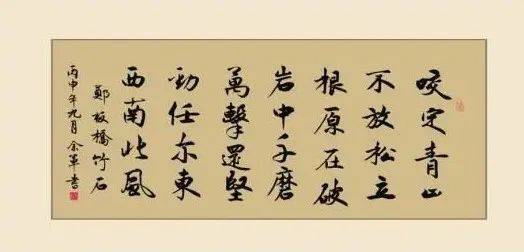 咬定青山
不放松立
根原在破
岩中千磨
萬擊還堅
勁任尔東
西南北風
鄭板橋竹石
丙申年九月余軍書